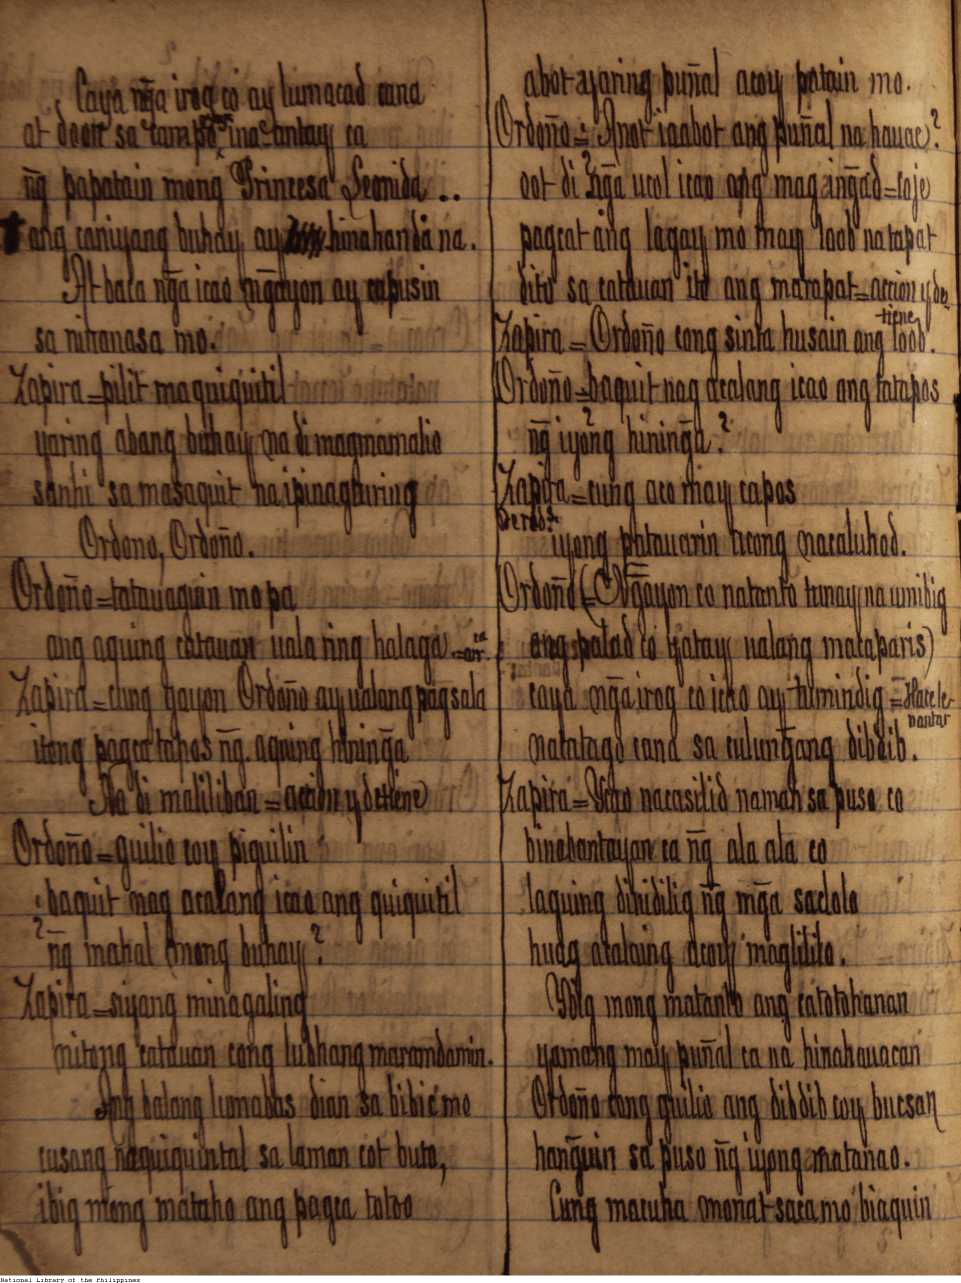 Caya nḡa irog co ay lumacad cana
at doon sa tampo ina antay ca
nḡ papatain mong Princesa Leonida ..
ang caniyang buhay ay hinahanda na.
At baca nḡa icao nḡayon ay capusin
sa ninanasa mo.
Zapira = pilit maquiquitil
yaring abang buhay na di magmamaliu
sanhi sa masaquit na ipinagturing
Ordoño, Ordoño.
Ordoño = tatauaguin mo pa
ang aquing catauan uala ring halaga
Zapira = cung gayon Ordoño ay ualang pagsala
itong pagcatapos nḡ aquing hininḡa
Na di maliliban = accion y detiene
Ordoño = guilio coy piguilin
baquit nag acalang icao ang quiquitil
nḡ mahal mong buhay?
Zapira = siyang minagaling
nitong catauan cong lubhang maramdamin.
Ang balang lumabas dian sa bibic mo
cusang naquiquintal sa laman cot buto,
ibig mong mataho ang pagca totoo
abot ayaring puñal acoy patain mo.
Ordoño = Anot iaabot ang puñal na hauac?
oot di nḡa ucol icao ang mag inḡad = coje
pagcat ang lagay mo may loob na tapat
dito sa catauan ito ang marapat = accion y detiene
Zapira = Ordoño cong sinta husain ang loob.
Ordoño = baquit nag acalang icao ang tatapos
nḡ iyong hininḡa?
Zapira = cung aco may capos
iyong patauarin ticong nacaluhod.
Ordoño (= Nḡayon co natanto tunay na umibig
ang palad co yatay ualang macaparis)
caya nḡa irog co icao ay tumindig = Hace levantar
natatago cana sa culunḡang dibdib.
Zapira = Icao nacasilid naman sa puso co
binabantayan ca nḡ ala ala co
laguing dinidilig nḡ mḡa saclolo
huag acalaing acoy maglililo.
Ibig mong matanto ang catotohanan
yamang may puñal ca na hinahauacan
Ordoño cong guilio ang dibdib coy bucsan
hanḡuin sa puso nḡ iyong matanao.
Cung macuha monat saca mo biaquin